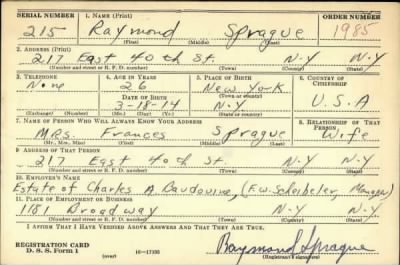 SERIAL NUMBER 1. NAME (Print) ORDER NUMBER
215 Raymond Sprague 1985
(First) (Middle) (Last)
2. ADDRESS (Print)
217 East 40th St. N-Y N-Y
(Number and street or R. F. D. number) (Town) (County) (State)
3. TELEPHONE 4. AGE IN YEARS 5. PLACE OF BIRTH 6. COUNTRY OF CITIZENSHIP
None 26 New York
DATE OF BIRTH (Town or county)
3-18-14 N-Y U.S.A
(Exchange) (Number) (Mo.) (Day) (Yr.) (State or country)
7. NAME OF PERSON WHO WILL ALWAYS KNOW YOUR ADDRESS 8. RELATIONSHIP OF THAT PERSON
MRS. Frances Sprague Wife
(Mr., Mrs., Miss) (First) (Middle) (Last)
9. ADDRESS OF THAT PERSON
217 East 40th St. N-Y N-Y
(Number and street or R. F. D. number) (Town) (County) (State)
10. EMPLOYER'S NAME
Estate of Charles A. Baudouine, (F.W. Scheibeler, Manager)
11. PLACE OF EMPLOYMENT OR BUSINESS
1181 Broadway N-Y N-Y
(Number and street or R. F. D. number) (Town) (County) (State)
I AFFIRM THAT I HAVE VERIFIED ABOVE ANSWERS AND THAT THEY ARE TRUE.
REGISTRATION CARD
D. S. S. Form 1 (over) 16-17105 Raymond Sprague
(Registrant's signature)